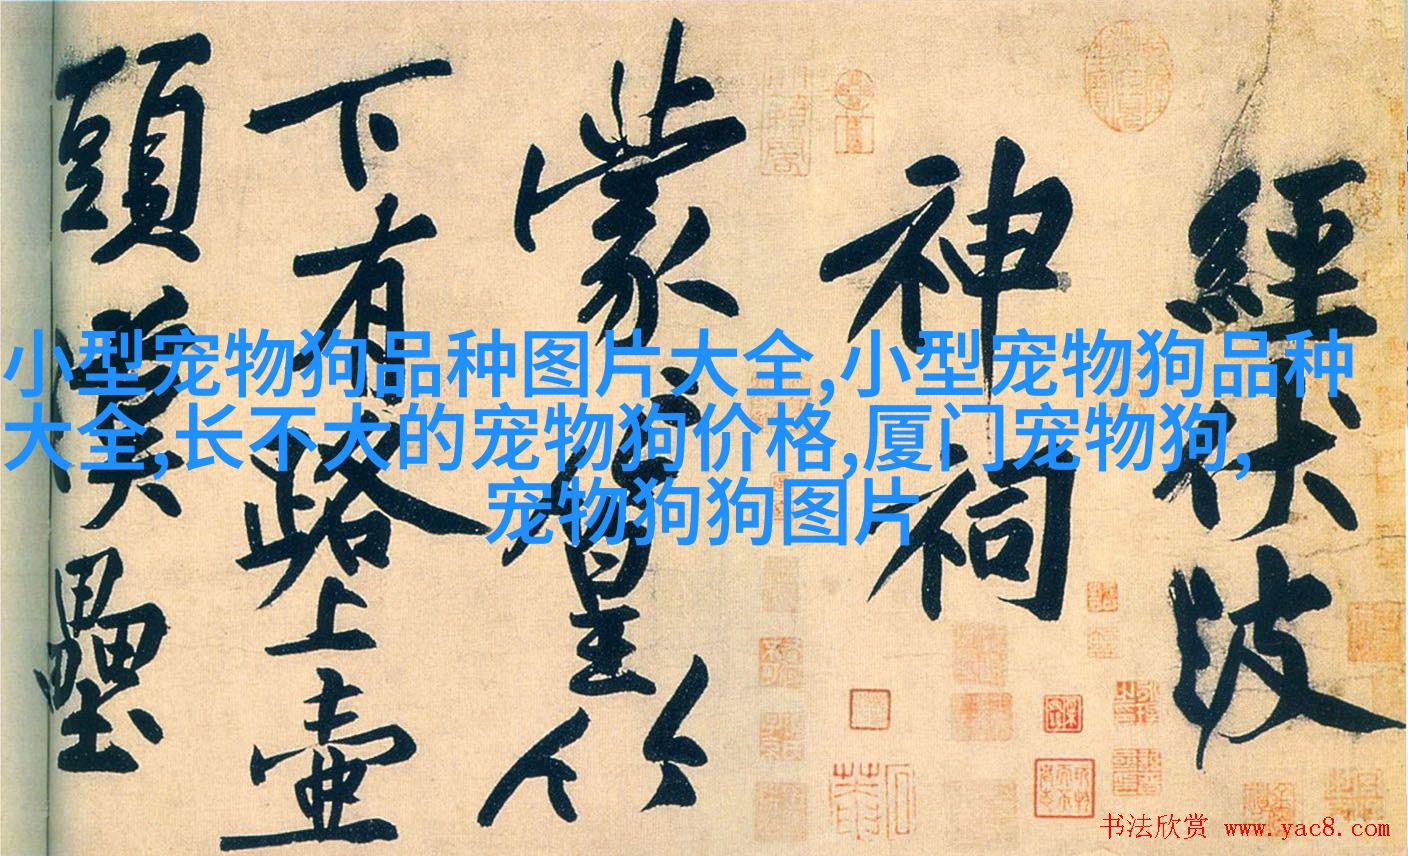 小型宠物狗品种图片大全,小型宠物狗品种
大全,长不大的宠物狗价格,厦门宠物狗,
宠物狗狗图片
經伏波
神祠
蒙〻篁竹
下有路上壺
頭漢壘
书法欣赏 www.yac8.com